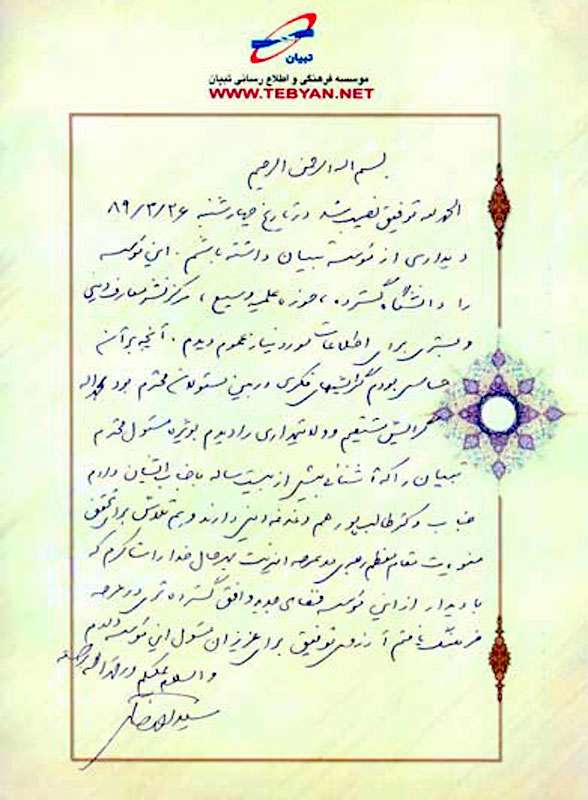 تبیان
موسسه فرهنگی و اطلاع رسانی تبیان
WWW.TEBYAN.NET
بسم الله الرحمن الرحیم
الحمد لله توفیق نصیب شد در تاریخ چهارشنبه ۸۹/۳/۲۶
دیداری از موسسه تبیان داشته باشم. این موسسه
را دانشگاه گسترده، حوزه علمیه وسیع، مرکز نشر معارف دینی
و بستری برای اطلاعات مورد نیاز عموم دیدم. آنچه بر آن
حساس بودم گرایشهای فکری در بین مسئولان محترم بود بحمدالله
گرایش مستقیم و ولایتمداری را دیدم بویژه مسئول محترم
تبیان را که آشنائی بیش از بیست ساله با جناب ایشان دارم
جناب دکتر طالب پور هم دغدغه دینی دارند و هم تلاش برای تحقق
منویات مقام معظم رهبری در عرصه اینترنت بهرحال خدا را شاکرم که
با دیدار از این موسسه فضای جدید و افق گسترده تری در عرصه
فرهنگ یافتم آرزوی توفیق برای عزیزان مسئول این موسسه دارم
والسلام علیکم و رحمة الله
سید